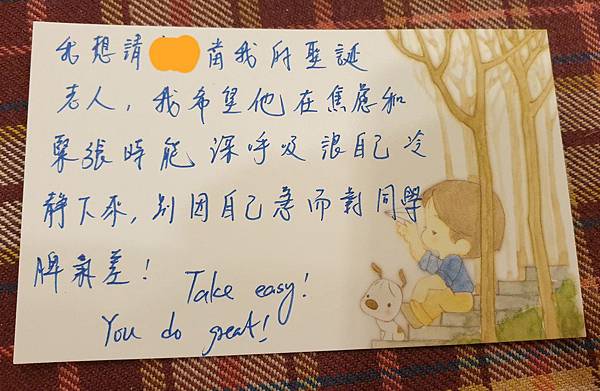 我想請 當我的聖誕
老人，我希望他在焦慮和
緊張時能深呼吸讓自己冷
靜下來，別因自己急而對同學
脾氣差！
Take easy!
You do great!